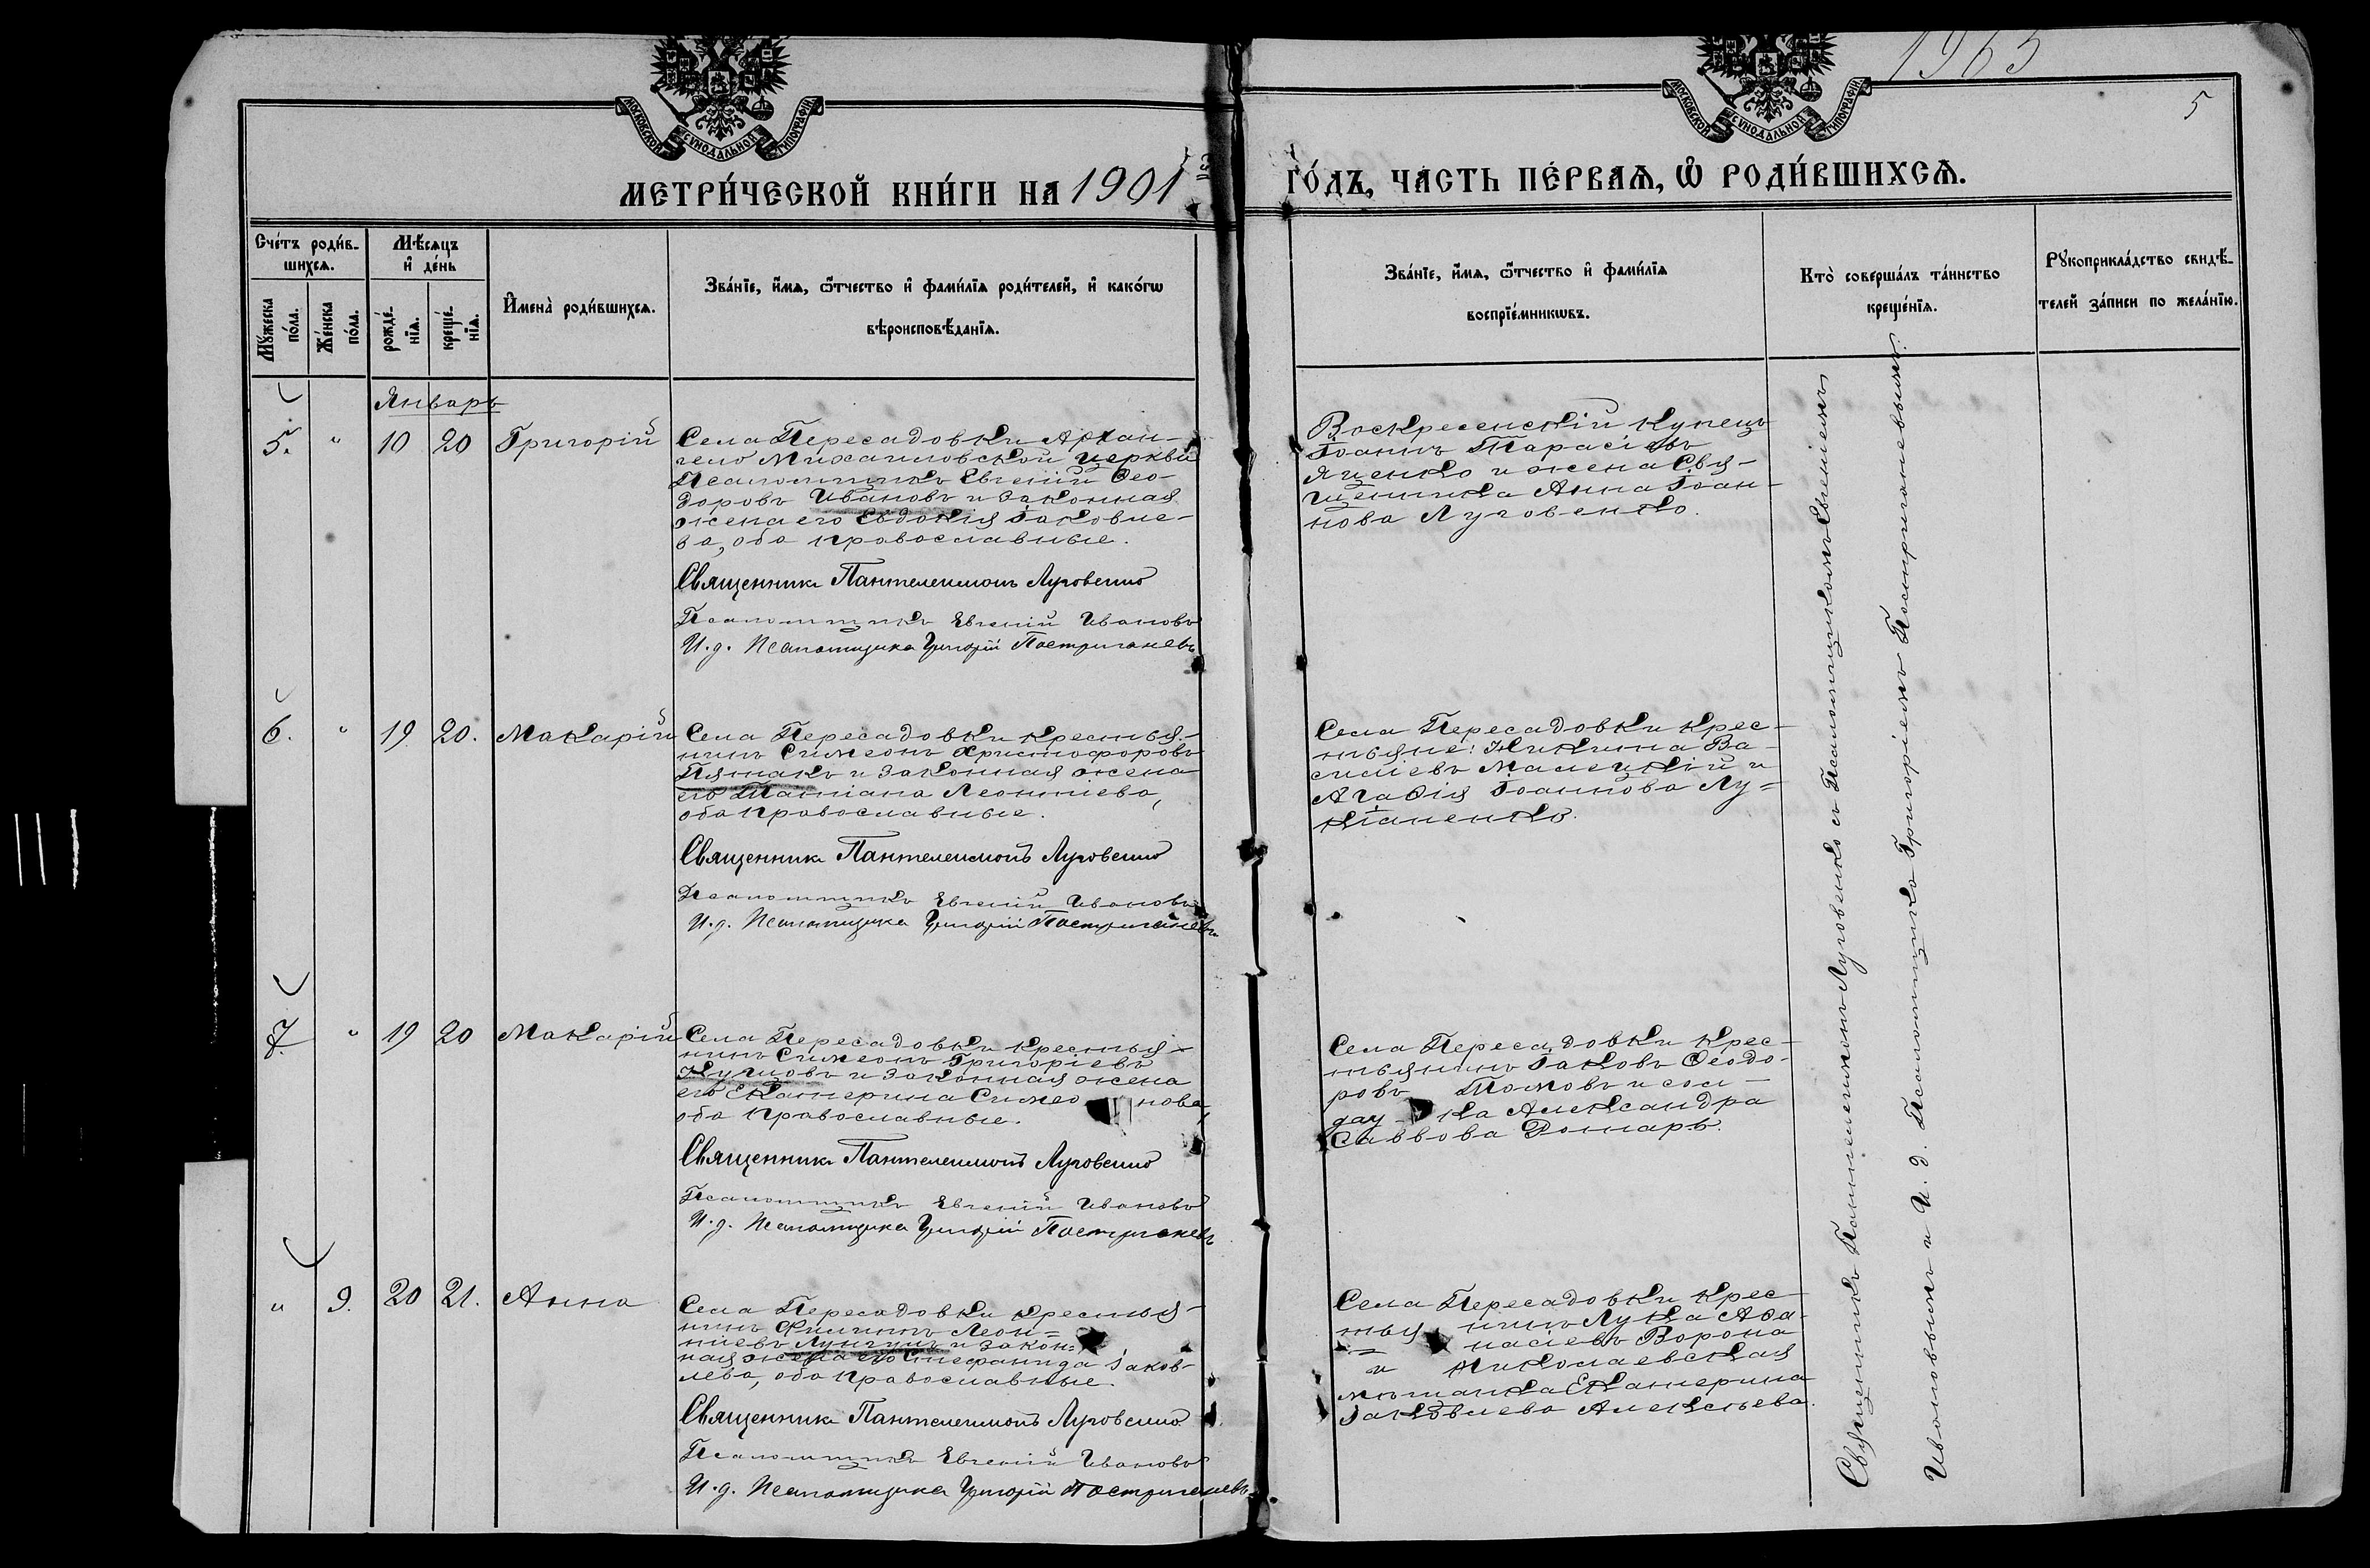 1965
5
МОСКОВСКОЙ СѴНОДАЛЬНОЙ ТИПОГРАФІИ
МОСКОВСКОЙ СѴНОДАЛЬНОЙ ТИПОГРАФІИ
МЕТРИ́ЧЕСКОЙ КНИ́ГИ НА 1901 ГО́ДЪ, ЧА́СТЬ ПЕ́РВАѦ, Ѡ҆ РОДИ́ВШИХСѦ.
Сче́тъ роди́в-
шихсѧ.
Мꙋ́жеска по́ла.
Же́нска по́ла.
Мѣ́сѧцъ
и҆ де́нь
рожде́-
нїѧ.
креще́-
нїѧ.
И҆мена̀ роди́вшихсѧ.
Зва́нїе, и҆́мѧ, ѻ҆́тчество и҆ фами́лїѧ роди́телей, и҆ како́гѡ
вѣроисповѣ́данїѧ.
Зва́нїе, и҆́мѧ, ѻ҆́тчество и҆ фами́лїѧ
воспрїе́мникѡвъ.
Кто̀ соверша́лъ та́инство
креще́нїѧ.
Рꙋкоприкла́дство свидѣ́-
телей за́писи по жела́нїю.
Январь
5. " 10 20 Григорій
Села Пересадовки Архан-
гело Михаиловской церкви
Псаломщикъ Евгеній Ѳео-
доровъ Ивановъ и законная
жена его Евдокія Іаковле-
ва, оба православные.
Священникъ Пантелеимонъ Луговенко
Псаломщикъ Евгеній Ивановъ
И. д. Псаломщика Григорій Постриганевъ
Воскресенскій купецъ
Іоаннъ Тарасіевъ
Яценко и жена Свя-
щенника Анна Іоан-
нова Луговенко.
6. " 19 20. Макарій
Села Пересадовки крестья-
нинъ Симеонъ Христофоровъ
Пятакъ и законная жена
его Татіана Леонтіева,
оба православные.
Священникъ Пантелеимонъ Луговенко
Псаломщикъ Евгеній Ивановъ
И. д. Псаломщика Григорій Постриганевъ
Села Пересадовки крес-
тьяне: Никита Ва-
силіевъ Малецкій и
Агафія Іоаннова Лу-
кіаненко.
7. " 19 20 Макарій
Села Пересадовки крестья-
нинъ Симеонъ Григоріевъ
и законная жена
его Екатерина Симеонова,
оба православные.
Священникъ Пантелеимонъ Луговенко
Псаломщикъ Евгеній Ивановъ
И. д. Псаломщика Григорій Постриганевъ
Села Пересадовки крес-
тьянинъ Іаковъ Ѳеодо-
ровъ Томовъ и сол-
датка Александра
Саввова
" 9. 20 21. Анна
Села Пересадовки крестья-
нинъ Филиппъ Леон-
тіевъ и закон-
ная жена его Стефанида Іаков-
лева, оба православные.
Священникъ Пантелеимонъ Луговенко
Псаломщикъ Евгеній Ивановъ
И. д. Псаломщика Григорій Постриганевъ
Села Пересадовки крес-
тьянинъ Лука Аѳа-
насіевъ Ворона
и Николаевская
мѣщанка Екатерина
Іаковлева Алексѣева.
Священникъ Пантелеимонъ Луговенко съ Псаломщикомъ Евгеніемъ
Ивановымъ и И. д. Псаломщика Григоріемъ Постриганевымъ.